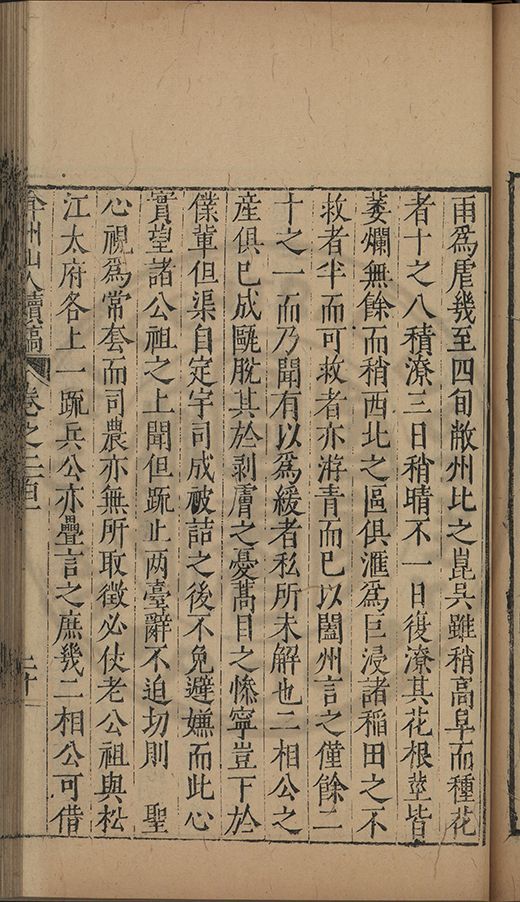 雨為虐幾至四旬敝州比之崑吳雖稍高阜而種花
者十之八積潦三日稍晴不一日復潦其花根莖皆
萎爛無餘而稍西北之區俱滙為巨浸諸稻田之不
救者半而可救者亦游青而已以闔州言之僅餘二
十之一而乃聞有以為緩者私所未解也二相公之
産俱已成甌脫其於剥膚之憂蒿目之慘寧豈下於
僕輩但渠自定宇司成被詰之後不免避嫌而此心
實望諸公祖之上聞但䟽止两臺辭不迫切則　聖
心視為常套而司農亦無所取徵必仗老公祖與松
江太府各上一䟽兵公亦疊言之庶幾二相公可借
弇州山人續稿　卷之二百　二十